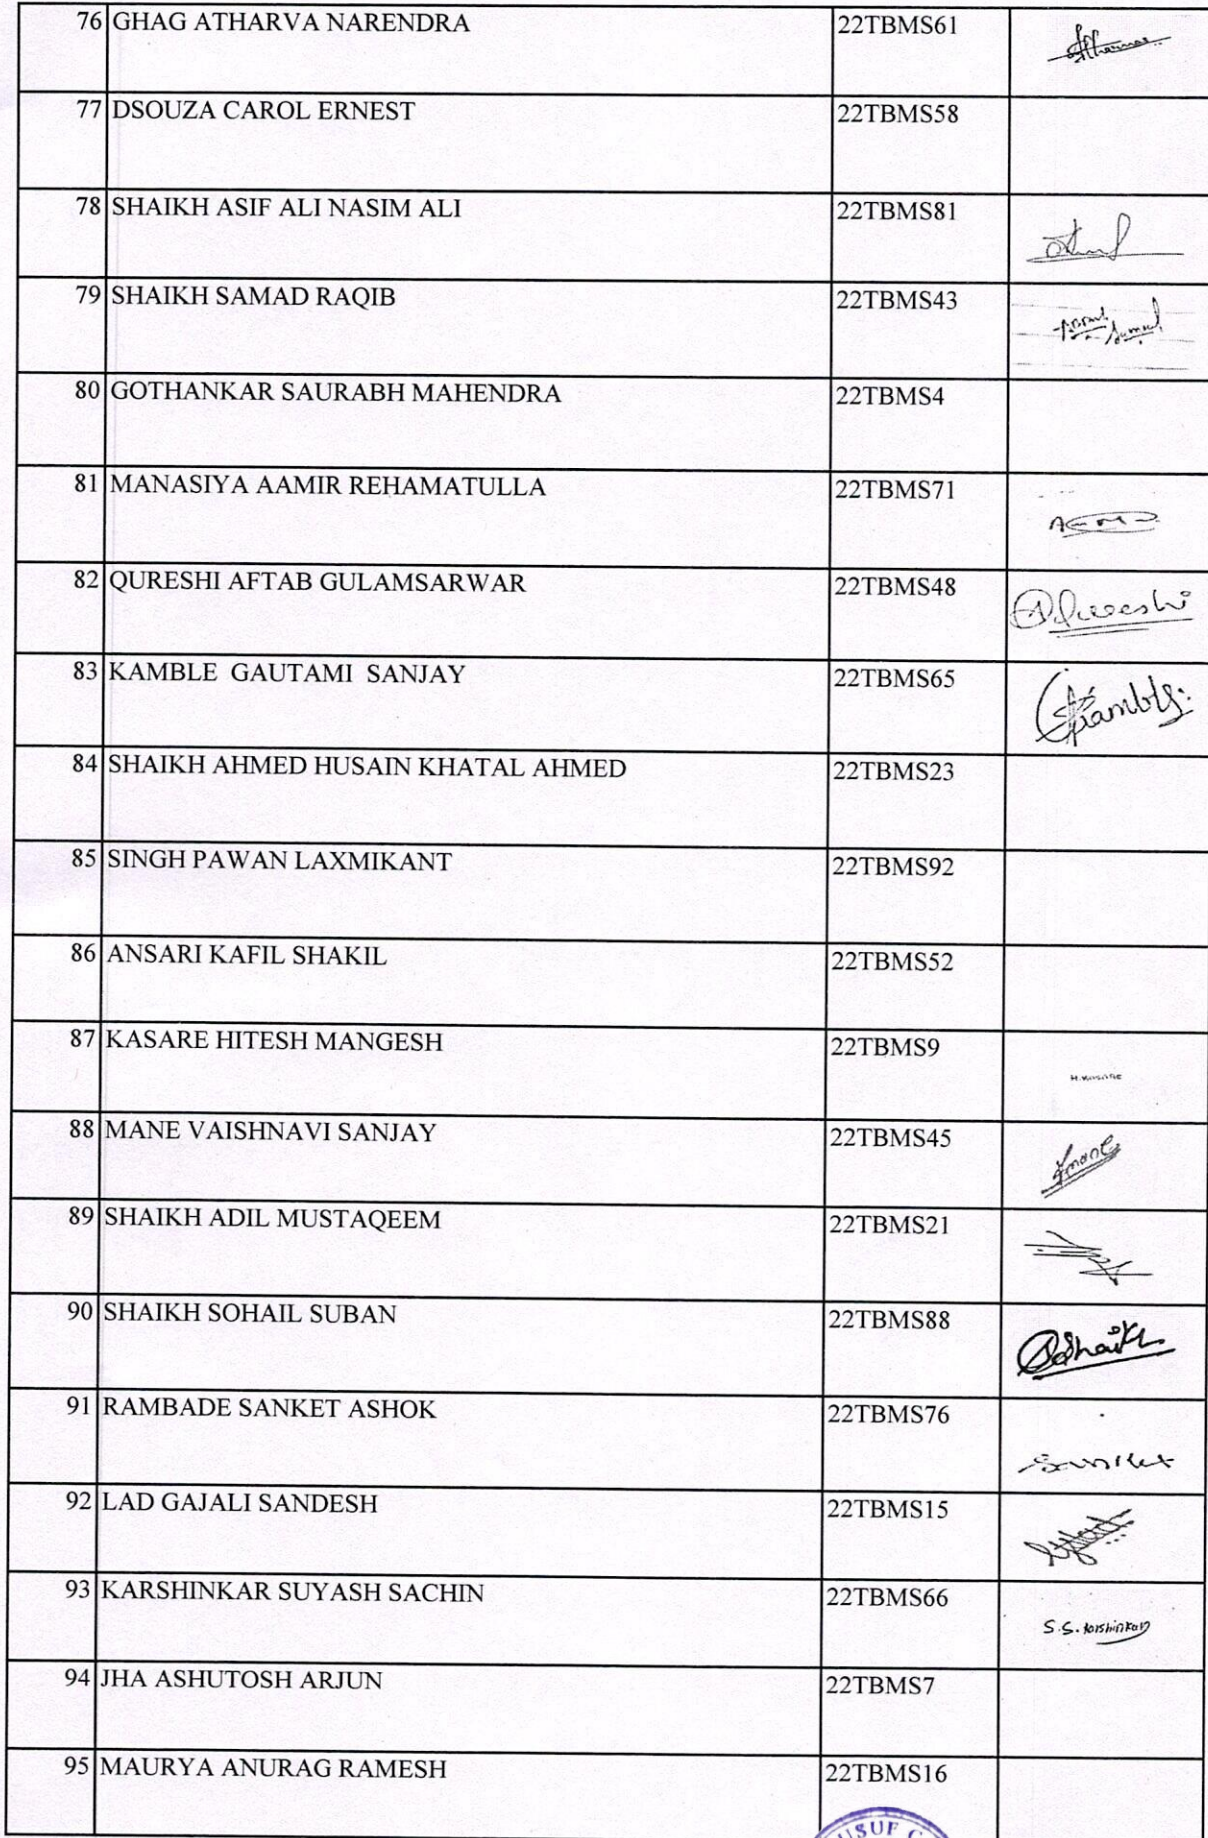 76 GHAG ATHARVA NARENDRA 22TBMS61
77 DSOUZA CAROL ERNEST 22TBMS58
78 SHAIKH ASIF ALI NASIM ALI 22TBMS81
79 SHAIKH SAMAD RAQIB 22TBMS43
80 GOTHANKAR SAURABH MAHENDRA 22TBMS4
81 MANASIYA AAMIR REHAMATULLA 22TBMS71
82 QURESHI AFTAB GULAMSARWAR 22TBMS48
83 KAMBLE GAUTAMI SANJAY 22TBMS65
84 SHAIKH AHMED HUSAIN KHATAL AHMED 22TBMS23
85 SINGH PAWAN LAXMIKANT 22TBMS92
86 ANSARI KAFIL SHAKIL 22TBMS52
87 KASARE HITESH MANGESH 22TBMS9
88 MANE VAISHNAVI SANJAY 22TBMS45
89 SHAIKH ADIL MUSTAQEEM 22TBMS21
90 SHAIKH SOHAIL SUBAN 22TBMS88
91 RAMBADE SANKET ASHOK 22TBMS76 Sanket
92 LAD GAJALI SANDESH 22TBMS15
93 KARSHINKAR SUYASH SACHIN 22TBMS66 S.S. Karshinkar
94 JHA ASHUTOSH ARJUN 22TBMS7
95 MAURYA ANURAG RAMESH 22TBMS16